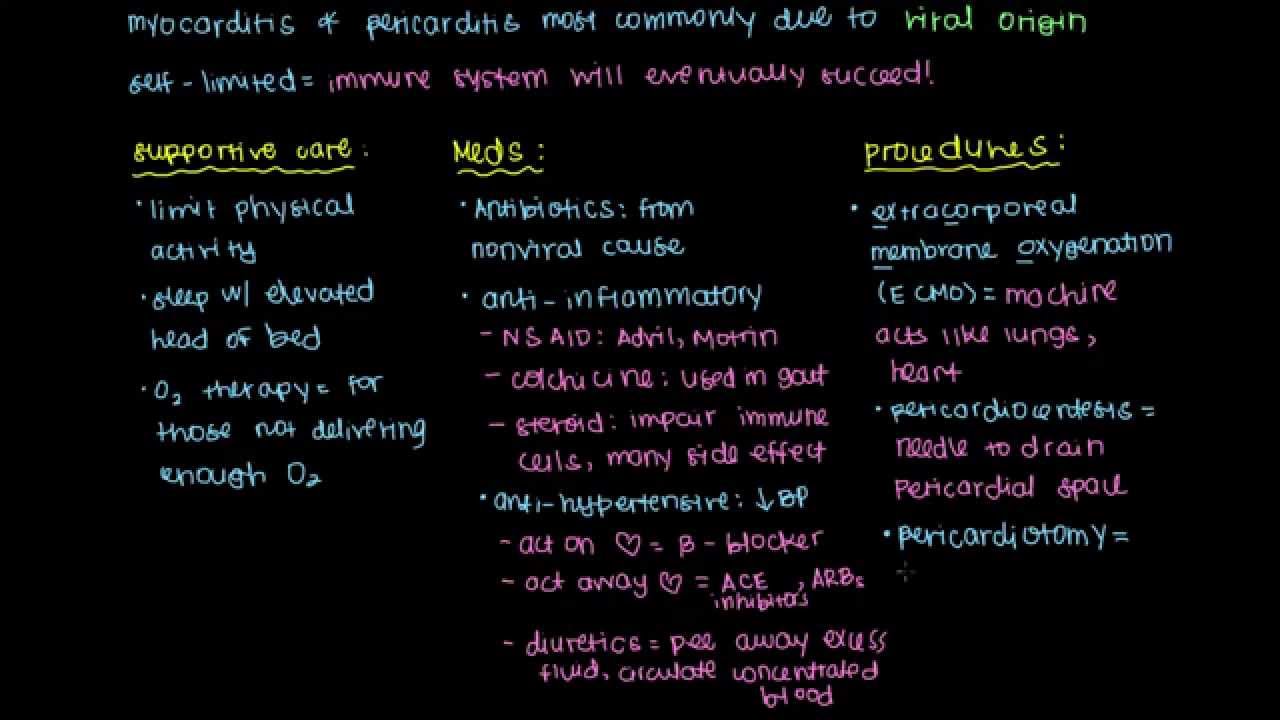 myocarditis & pericarditis most commonly due to viral origin
self-limited= immune system will eventually succeed!
supportive care:
• limit physical
activity
• sleep w/ elevated
head of bed
• O₂ therapy= for
those not delivering
enough O₂
Meds:
• Antibiotics: from
nonviral cause
• anti-inflammatory
- NSAID: Advil, Motrin
- colchicine: used in gout
- steroid: impair immune
cells, many side effect
• anti-hypertensive: ↓BP
- act on ♡ = β-blocker
- act away ♡ = ACE , ARBs
inhibitors
- diuretics = pee away excess
fluid, circulate concentrated
blood
procedures:
• extracorporeal
membrane oxygenation
(ECMO)= machine
acts like lungs,
heart
• pericardiocentesis =
needle to drain
pericardial space
• pericardiotomy=